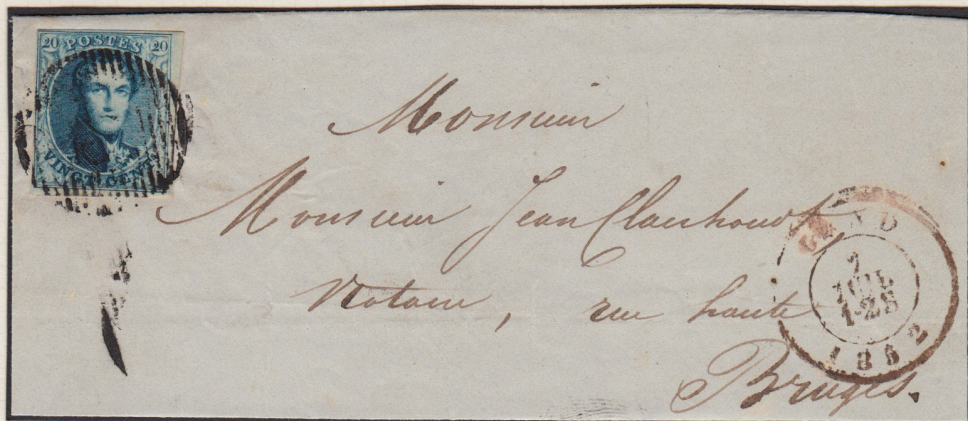 20 POSTES 20
VINGT CENTS
Monsieur
Monsieur Jean Clauhoudt,
Notaire, rue haute
Bruges.
GAND
7
JUIL
1852